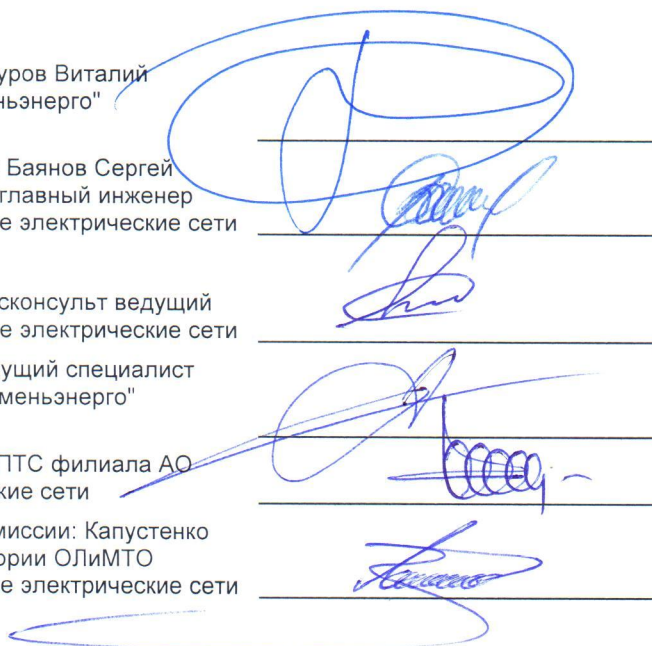 уров Виталий
ньэнерго"
Баянов Сергей
главный инженер
е электрические сети
сконсульт ведущий
е электрические сети
ущий специалист
меньэнерго"
ПТС филиала АО
кие сети
миссии: Капустенко
ории ОЛиМТО
е электрические сети